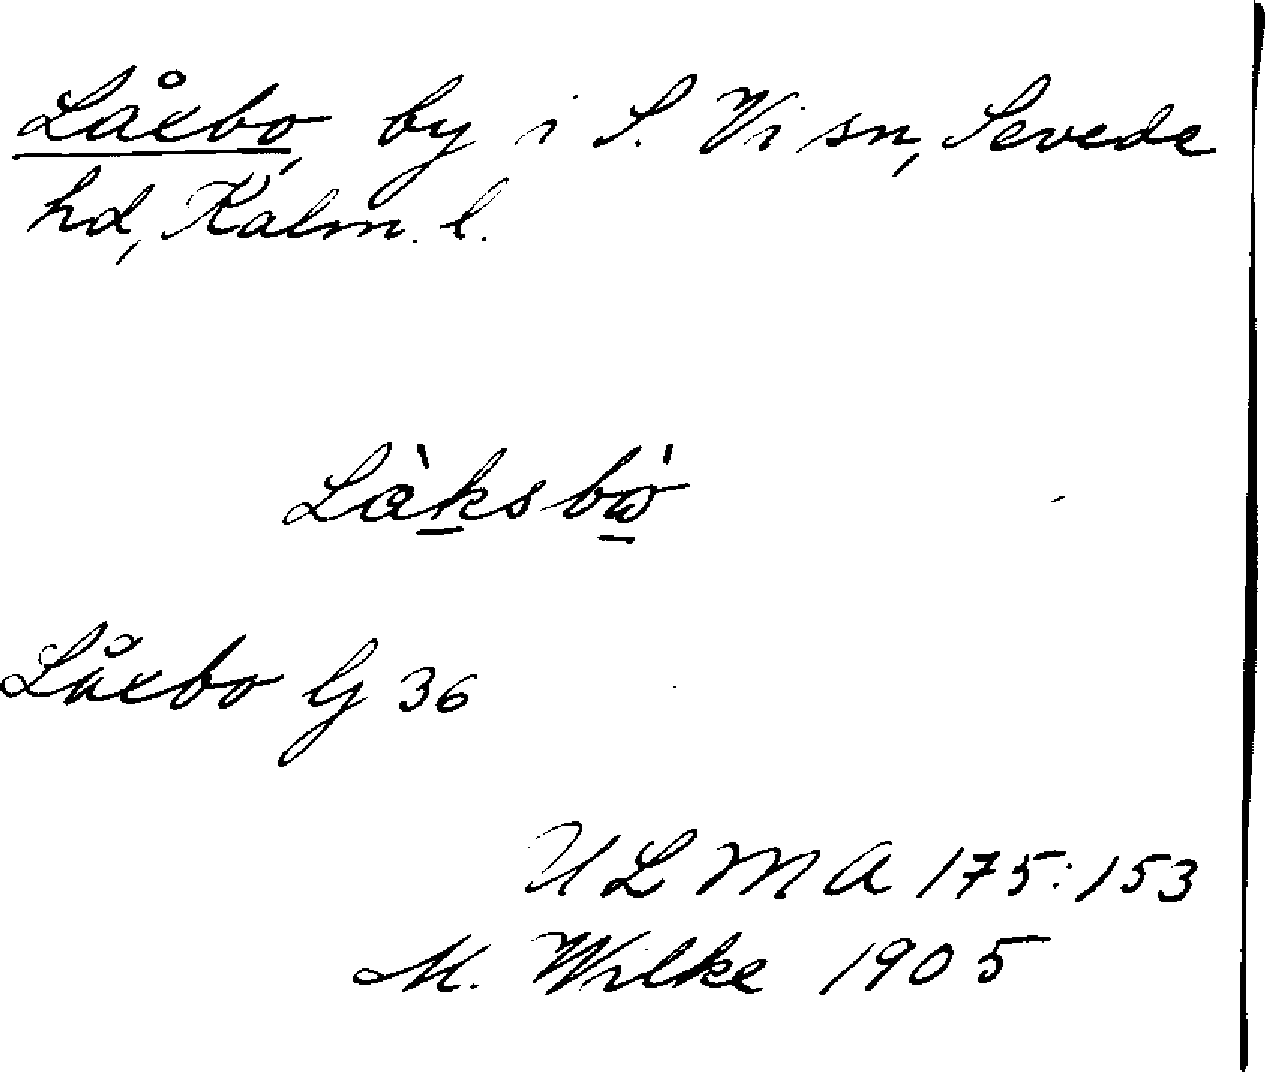 Låxbo, by i S. Vi sn, Sevede
hd, Kalm. l.
Låxbo G 36
ULMA 175:153
M. Wilke 1905